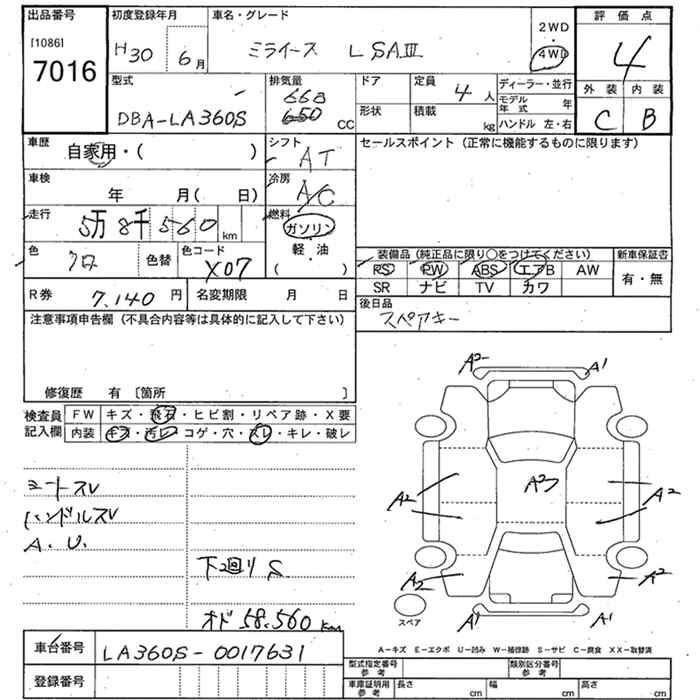 出品番号
[1086]
7016
初度登録年月
H30 6月
車名・グレード
ミライース L SAⅢ
2WD
4WD
評価点
4
外装 内装
C B
型式
DBA-LA360S
排気量
668
650 CC
ドア
形状
定員
4人
積載
kg
ディーラー・並行
モデル年式 年
ハンドル 左・右
車歴
自家用・( )
シフト
AT
車検
年 月( 日)
冷房
A/C
走行
5万 8千 560 km
燃料
ガソリン
軽・油
( )
色
クロ
色替
色コード
X07
R券
7,140 円
名変期限 月 日
セールスポイント (正常に機能するものに限ります)
装備品(純正品に限り○をつけてください)
PS PW ABS エアB AW
SR ナビ TV カワ
新車保証書
有・無
後日品
スペアキー
注意事項申告欄 (不具合内容等は具体的に記入して下さい)
修復歴 有〔箇所 〕
検査員記入欄
FW キズ・飛石・ヒビ割・リペア跡・X要
内装 キズ・汚レ・コゲ・穴・スレ・キレ・破レ
シートスレ
ハンドルスレ
A.U.
下回りS
オド 58,560 km
A2 A1
A2 A2 A2
A2 A2
A1 A1
スペア
A-キズ E-エクボ U-凹み W-補修跡 S-サビ C-腐食 XX-取替済
車台番号
LA360S-0017631
登録番号
型式指定番号 参考
類別区分番号 参考
車庫証明用 参考
長さ cm
幅 cm
高さ cm